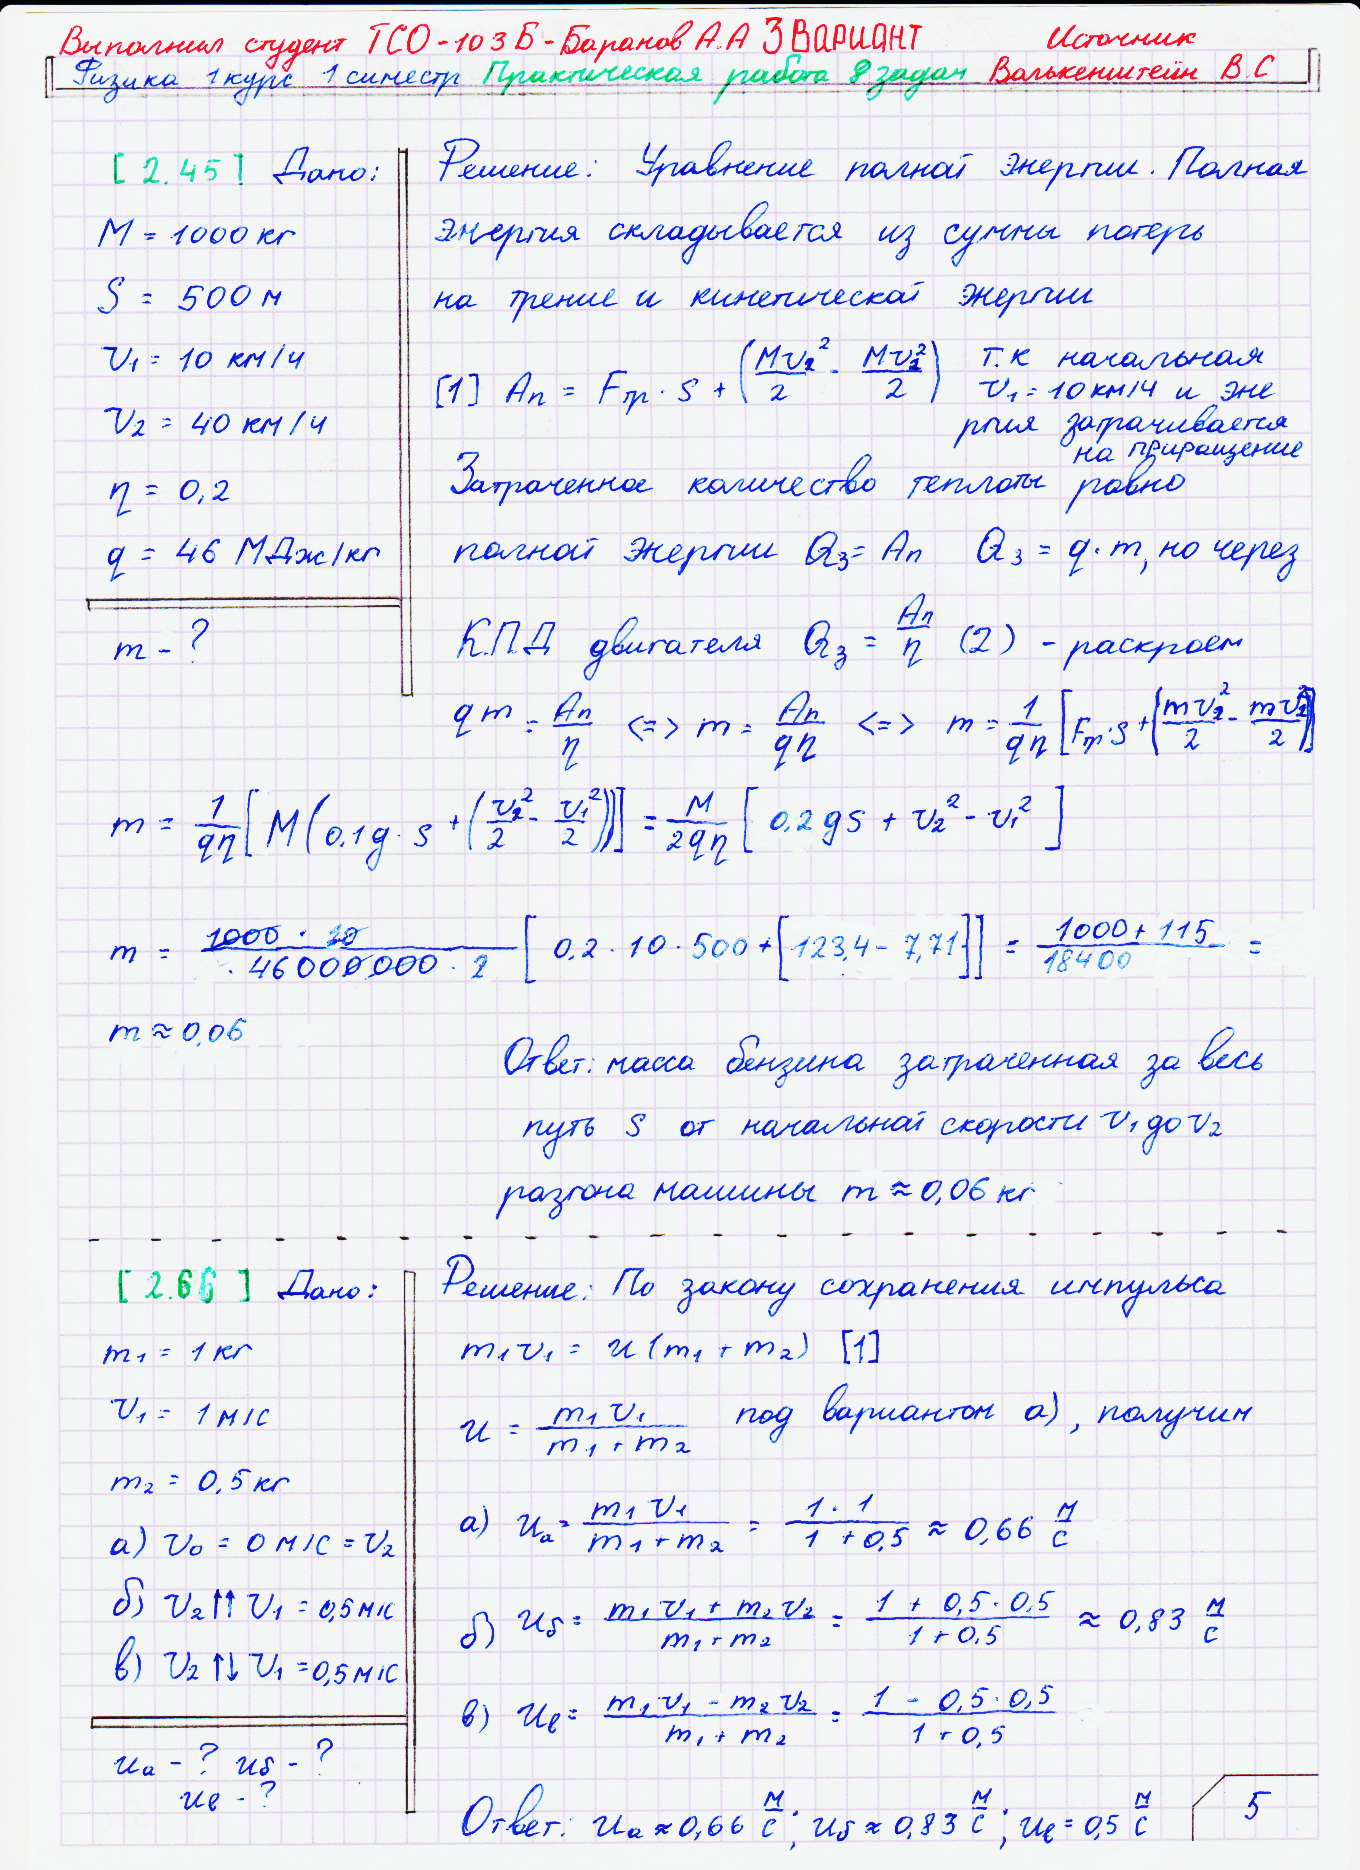 Выполнил студент ТСО-103Б-Баранов А.А 3 ВАРИАНТ Источник
Физика 1 курс 1 симестр Практическая работа 8 задач Валькенштейн В.С
[2.45] Дано:
M = 1000 кг
S = 500 м
υ₁ = 10 км/ч
υ₂ = 40 км/ч
η = 0,2
q = 46 МДж/кг
m - ?
Решение: Уравнение полной энергии. Полная
энергия складывается из суммы потерь
на трение и кинетической энергии
[1] Aп = Fтр · S + (Mυ₂²/2 - Mυ₂²/2) т.к начальная
υ₁ = 10 км/ч и эне
ргия затрачивается
на приращение
Затраченное количество теплоты равно
полной энергии Qз = Aп Qз = q·m, но через
К.П.Д двигателя Qз = Aп/η (2) - раскроем
qm = Aп/η <=> m = Aп/qη <=> m = 1/qη [Fтр·S + (mυ₂²/2 - mυ₂²/2)]
m = 1/qη [M(0,1g·S + (υ₂²/2 - υ₁²/2))] = M/2qη [0,2gS + υ₂² - υ₁²]
m = 1000 · 10/· 46000000 · 2 [0,2·10·500 + [123,4 - 7,71]] = 1000+115/18400 =
m ≈ 0,06
Ответ: масса бензина затраченная за весь
путь S от начальной скорости υ₁ до υ₂
разгона машины m ≈ 0,06 кг
[2.66] Дано:
m₁ = 1 кг
υ₁ = 1 м/с
m₂ = 0,5 кг
а) υ₀ = 0 м/с = υ₂
б) υ₂ ↑↑ υ₁ = 0,5 м/с
в) υ₂ ↑↓ υ₁ = 0,5 м/с
uа - ? uб - ?
uв - ?
Решение: По закону сохранения импульса
m₁υ₁ = u(m₁ + m₂) [1]
u = m₁υ₁/m₁+m₂ под вариантом а), получим
а) uа = m₁υ₁/m₁+m₂ = 1·1/1+0,5 ≈ 0,66 м/с
б) uб = m₁υ₁ + m₂υ₂/m₁+m₂ = 1 + 0,5·0,5/1+0,5 ≈ 0,83 м/с
в) uв = m₁υ₁ - m₂υ₂/m₁+m₂ = 1 - 0,5·0,5/1+0,5
Ответ: uа ≈ 0,66 м/с; uб ≈ 0,83 м/с; uв = 0,5 м/с
5